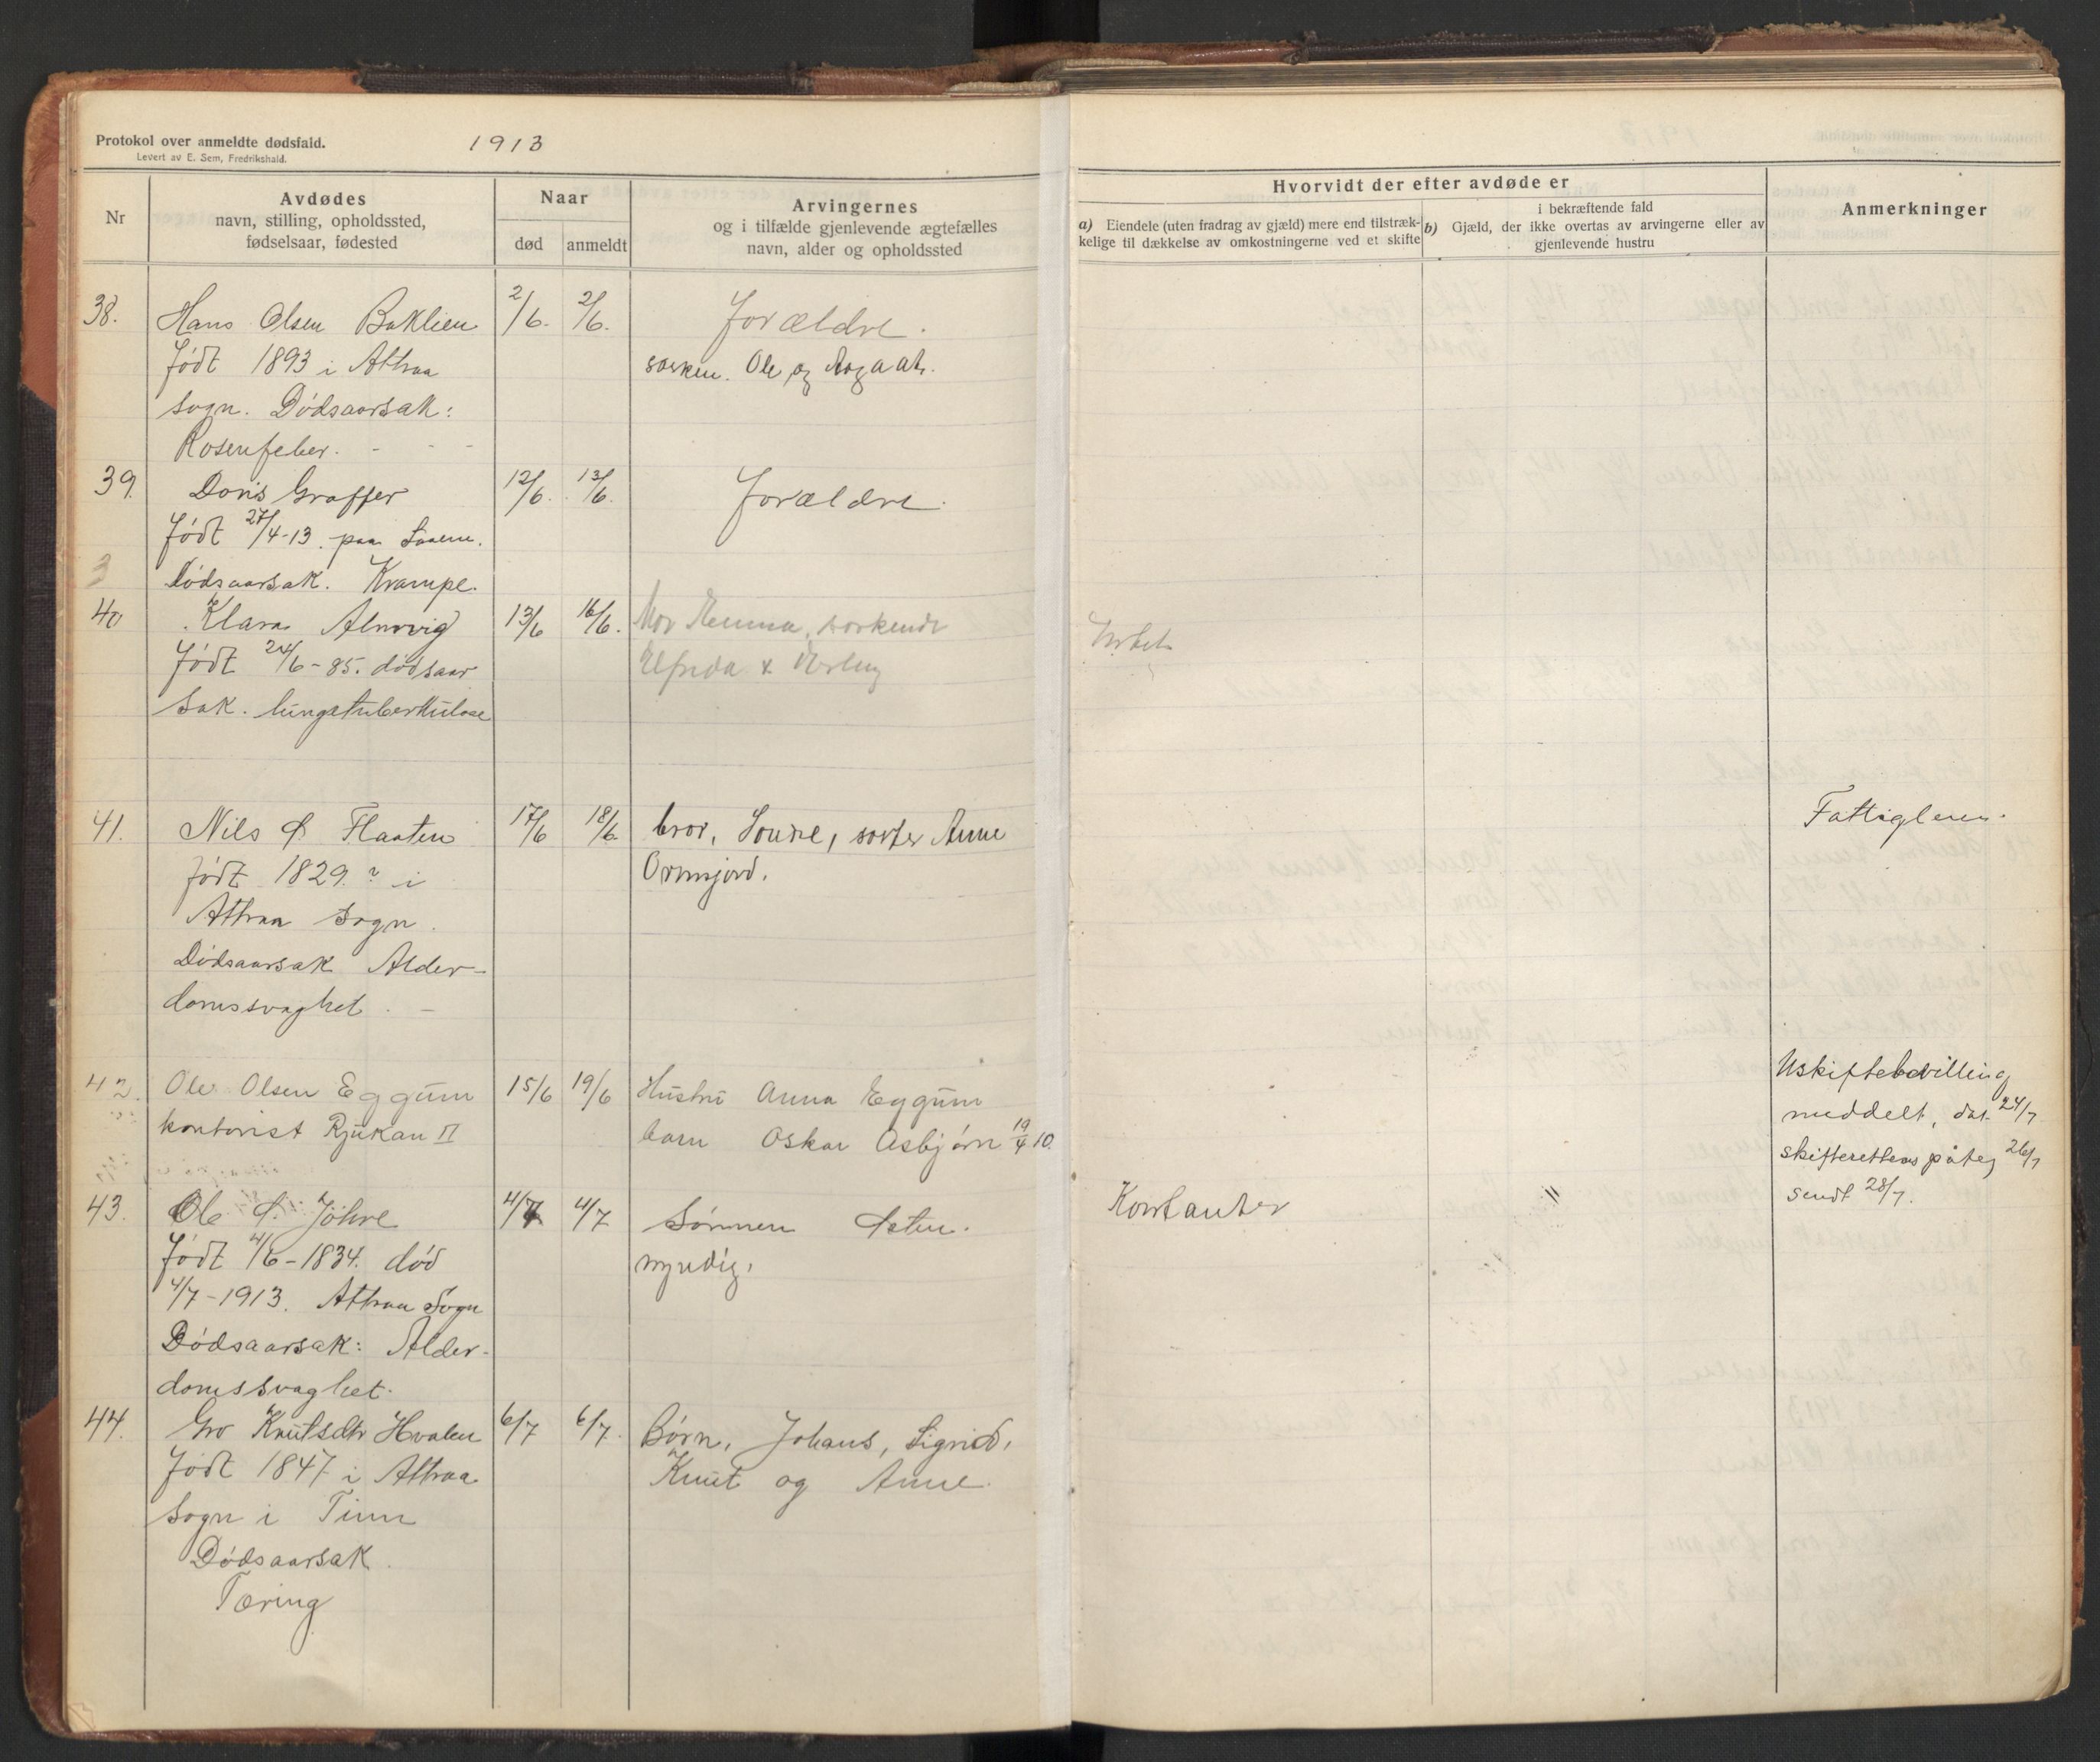 Protokol over anmeldte dødsfald.
Levert av E. Sem, Fredrikshald.
1913
Nr
Avdødes
navn, stilling, opholdssted,
fødselsaar, fødested
Naar
død
anmeldt
Arvingernes
og i tilfælde gjenlevende ægtefælles
navn, alder og opholdssted
Hvorvidt der efter avdøde er
a) Eiendele (uten fradrag av gjæld) mere end tilstræk-
kelige til dækkelse av omkostningerne ved et skifte
i bekræftende fald
b) Gjæld, der ikke overtas av arvingerne eller av
gjenlevende hustru
Anmerkninger
38. Hans Olsen Baklien 2/6. 2/6. Forældre.
født 1893 i Attraa
søsken. Ole og Aagaat.
sogn. Dødsaarsak:
Rosenfeber.
39. Doris Graffer 12/6. 13/6. Forældre.
født 27/4-13. paa Saaem.
3 Dødsaarsak. Krampe.
40 Klara Alnovig 13/6 16/6. Mor Emma, søskende
født 24/6-85. dødsaar
Elfrida & Erling
sak. lungetuberkulose
41. Nils O. Flaaten 17/6 18/6. bror, Sondre, søster Anne
Fattiglem.
født 1829.? i
Ormsjord.
Attraa Sogn.
Dødsaarsak Alder-
domssvaghet. -
42. Ole Olsen Eggum 15/6 19/6 Hustru Anna Eggum
kontorist Rjukan II
barn Oskar Asbjørn 19/4 10.
Uskiftebevilling
meddelt, dat. 24/7
skifterettens påteg 26/7
sendt 28/7.
43. Ole O. Jøhre 4/7 4/7 Sønnen Østen.
Kontanter
født 4/6-1834. død
myndig.
4/7-1913. Attraa Sogn
Dødsaarsak: Alder-
domssvaghet.
44. Gro Knutsdtr Hvalen 6/7 6/7. Børn, Johans, Sigrid,
født 1847 i Attraa
Knut og Anne.
Sogn i Tinn
Dødsaarsak.
Tæring